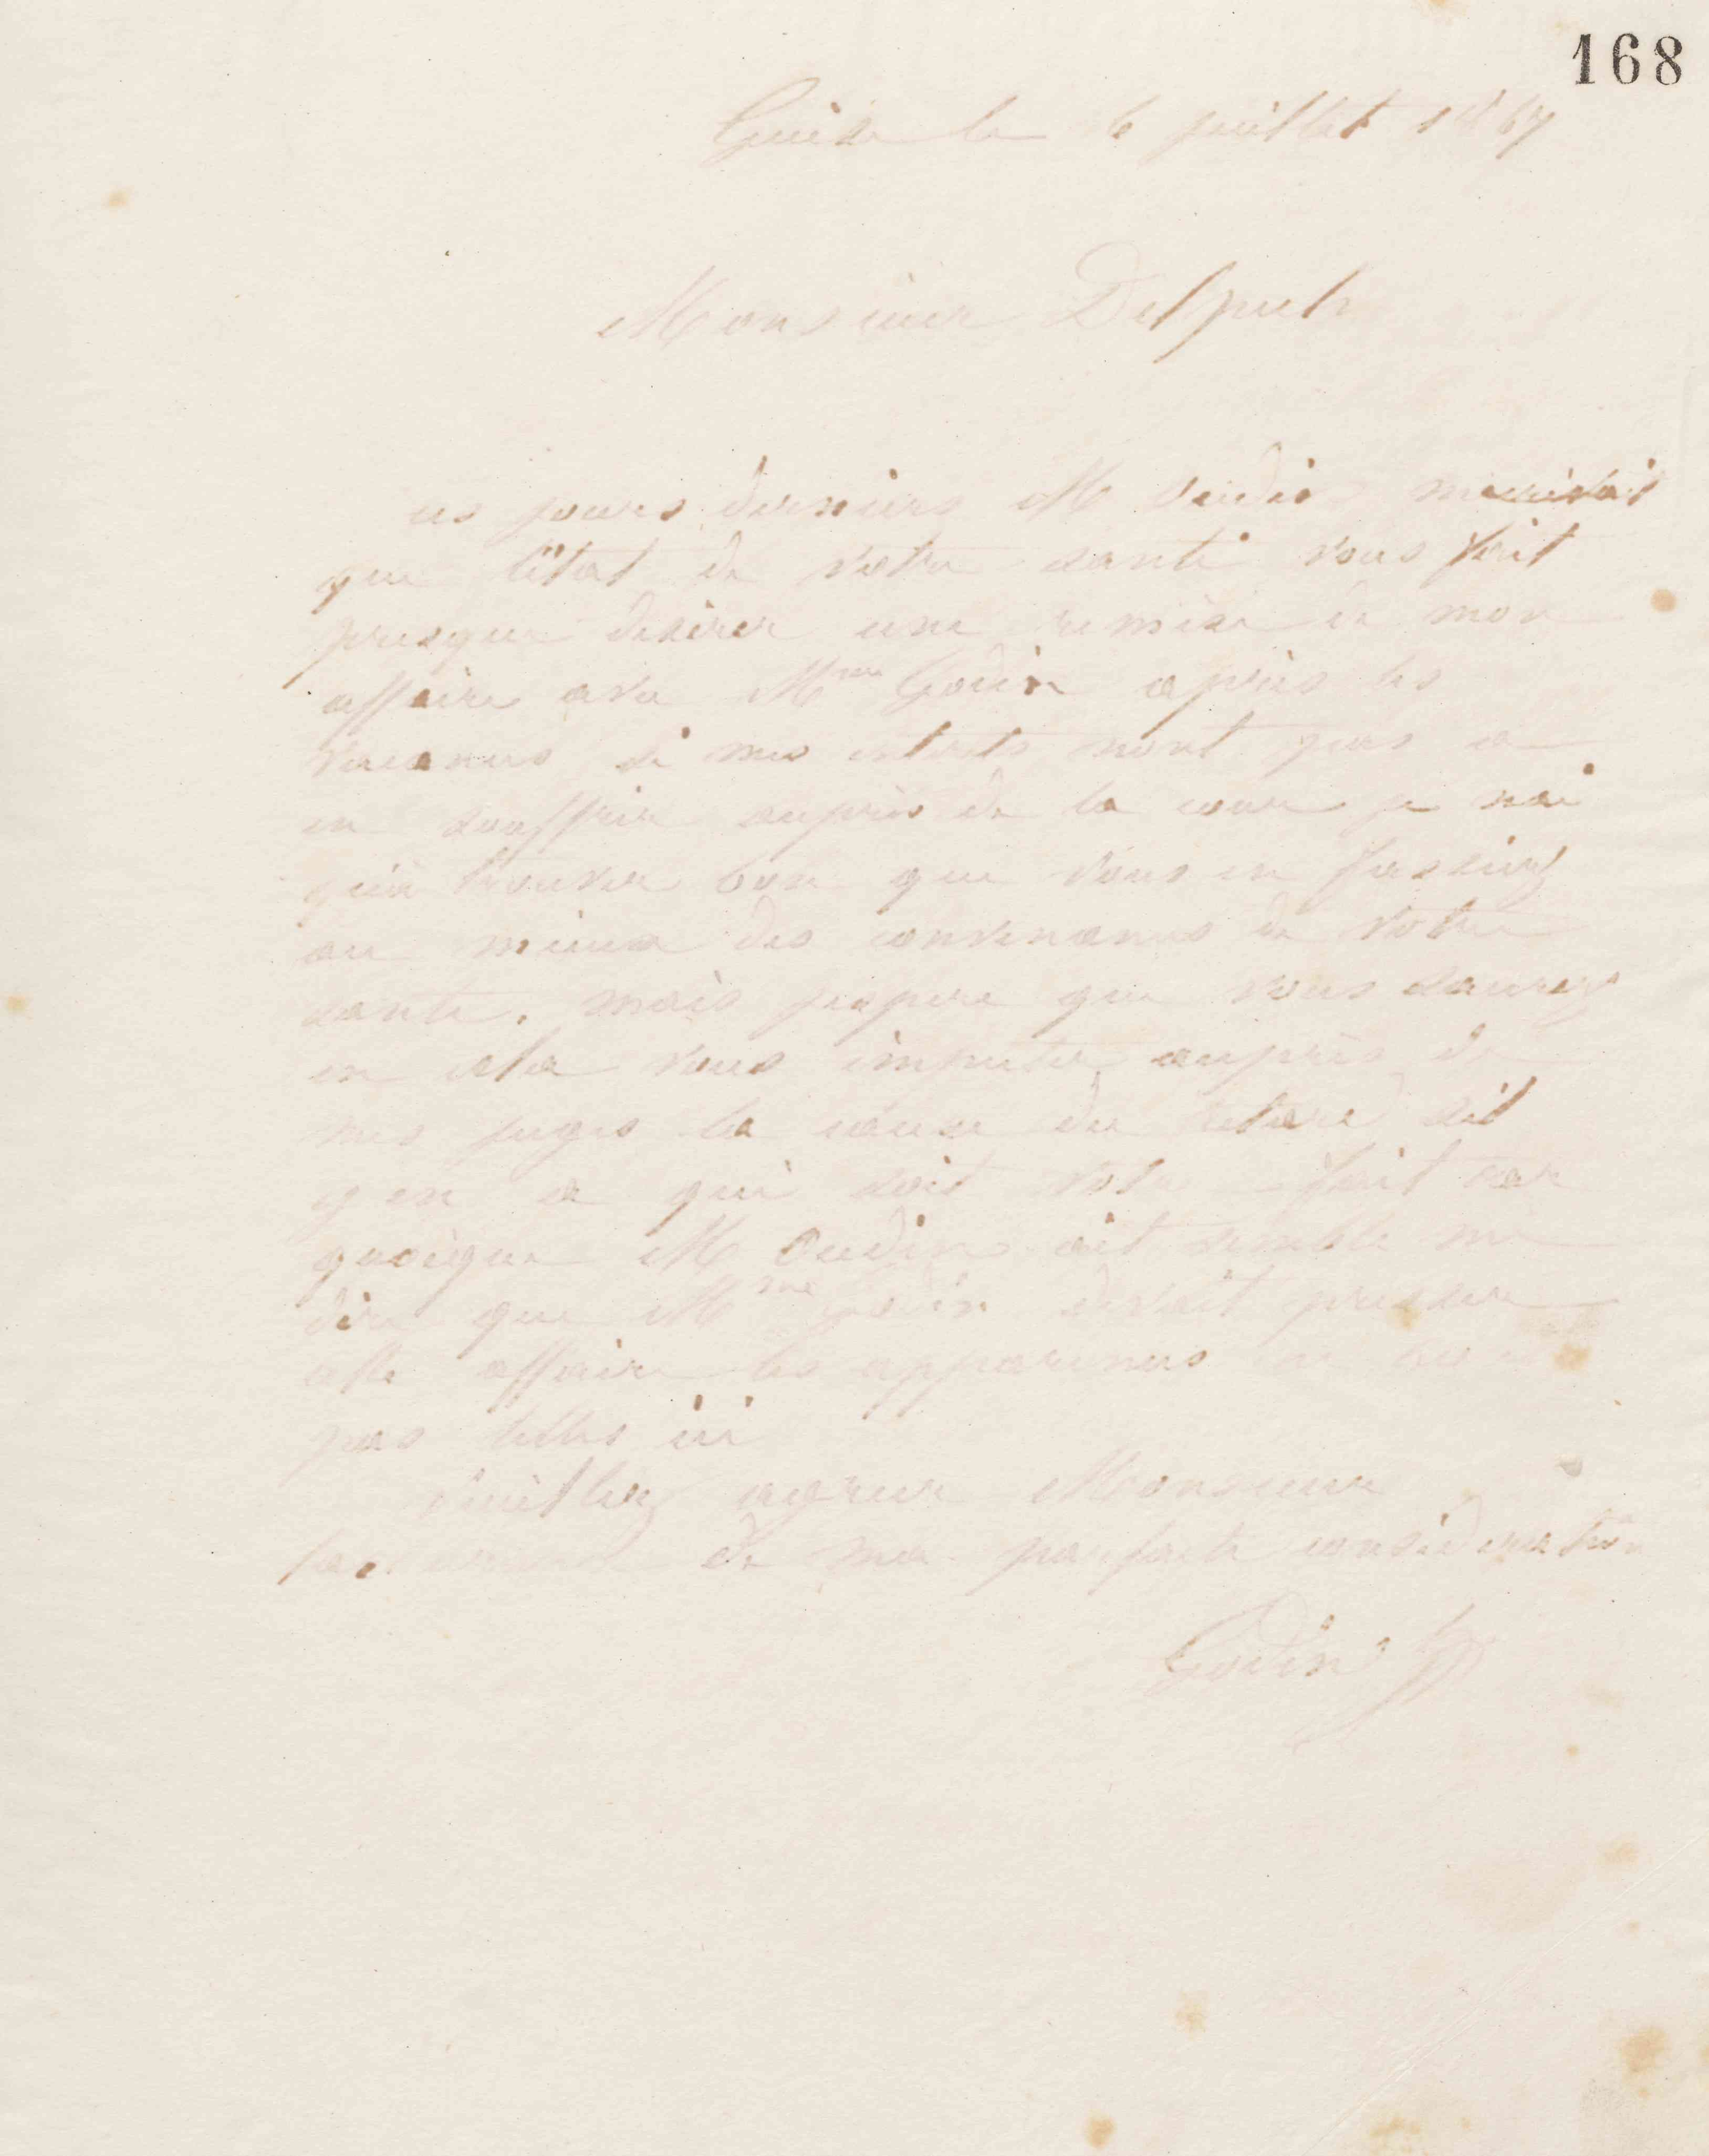 168
Guise le 6 juillet 1867
Monsieur Delpech
ces jours derniers M Oudin m'ecrivait
que l'état de votre santé vous fait
presque desirer une remise de mon
affaire avec Mme Godin après les
vacances si mes interets n'ont pas a
en souffrir auprès de la cour je n'ai
qu'a trouver bon que vous en fassiez
au mieux des convenances de votre
santé. mais j'espere que vous saurez
en cela vous imputer auprès de
mes juges la cause du retard
qui soit votre fait car
quoique M Oudin ait semblé me
dire que Mme Godin devait presser
cette affaire les apparences ne
pas telles ici
Veuillez agreer Monsieur
de ma parfaite consideration
Godin